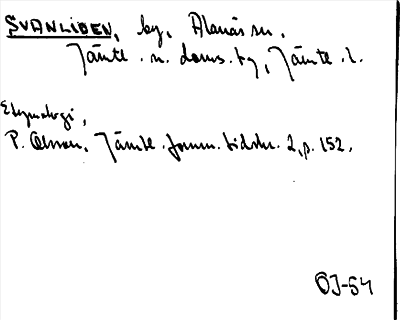 SVANLIDEN, by, Alanäs sn.
Jämtl. n. doms. by, Jämtl. l.
Etymologi,
P. Olsson, Jämtl. fornm. tidskr. 2, p. 152.
ÖJ-54